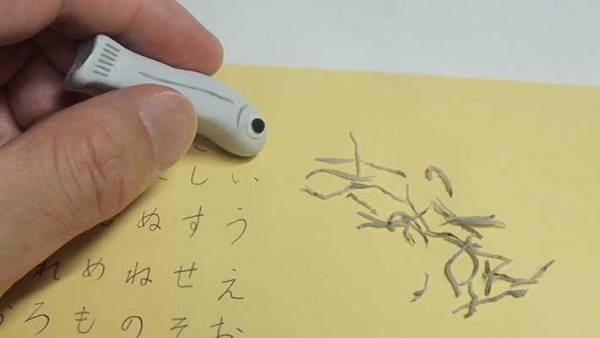 いうえお
しすせそ
ぬねの
めも
れろ